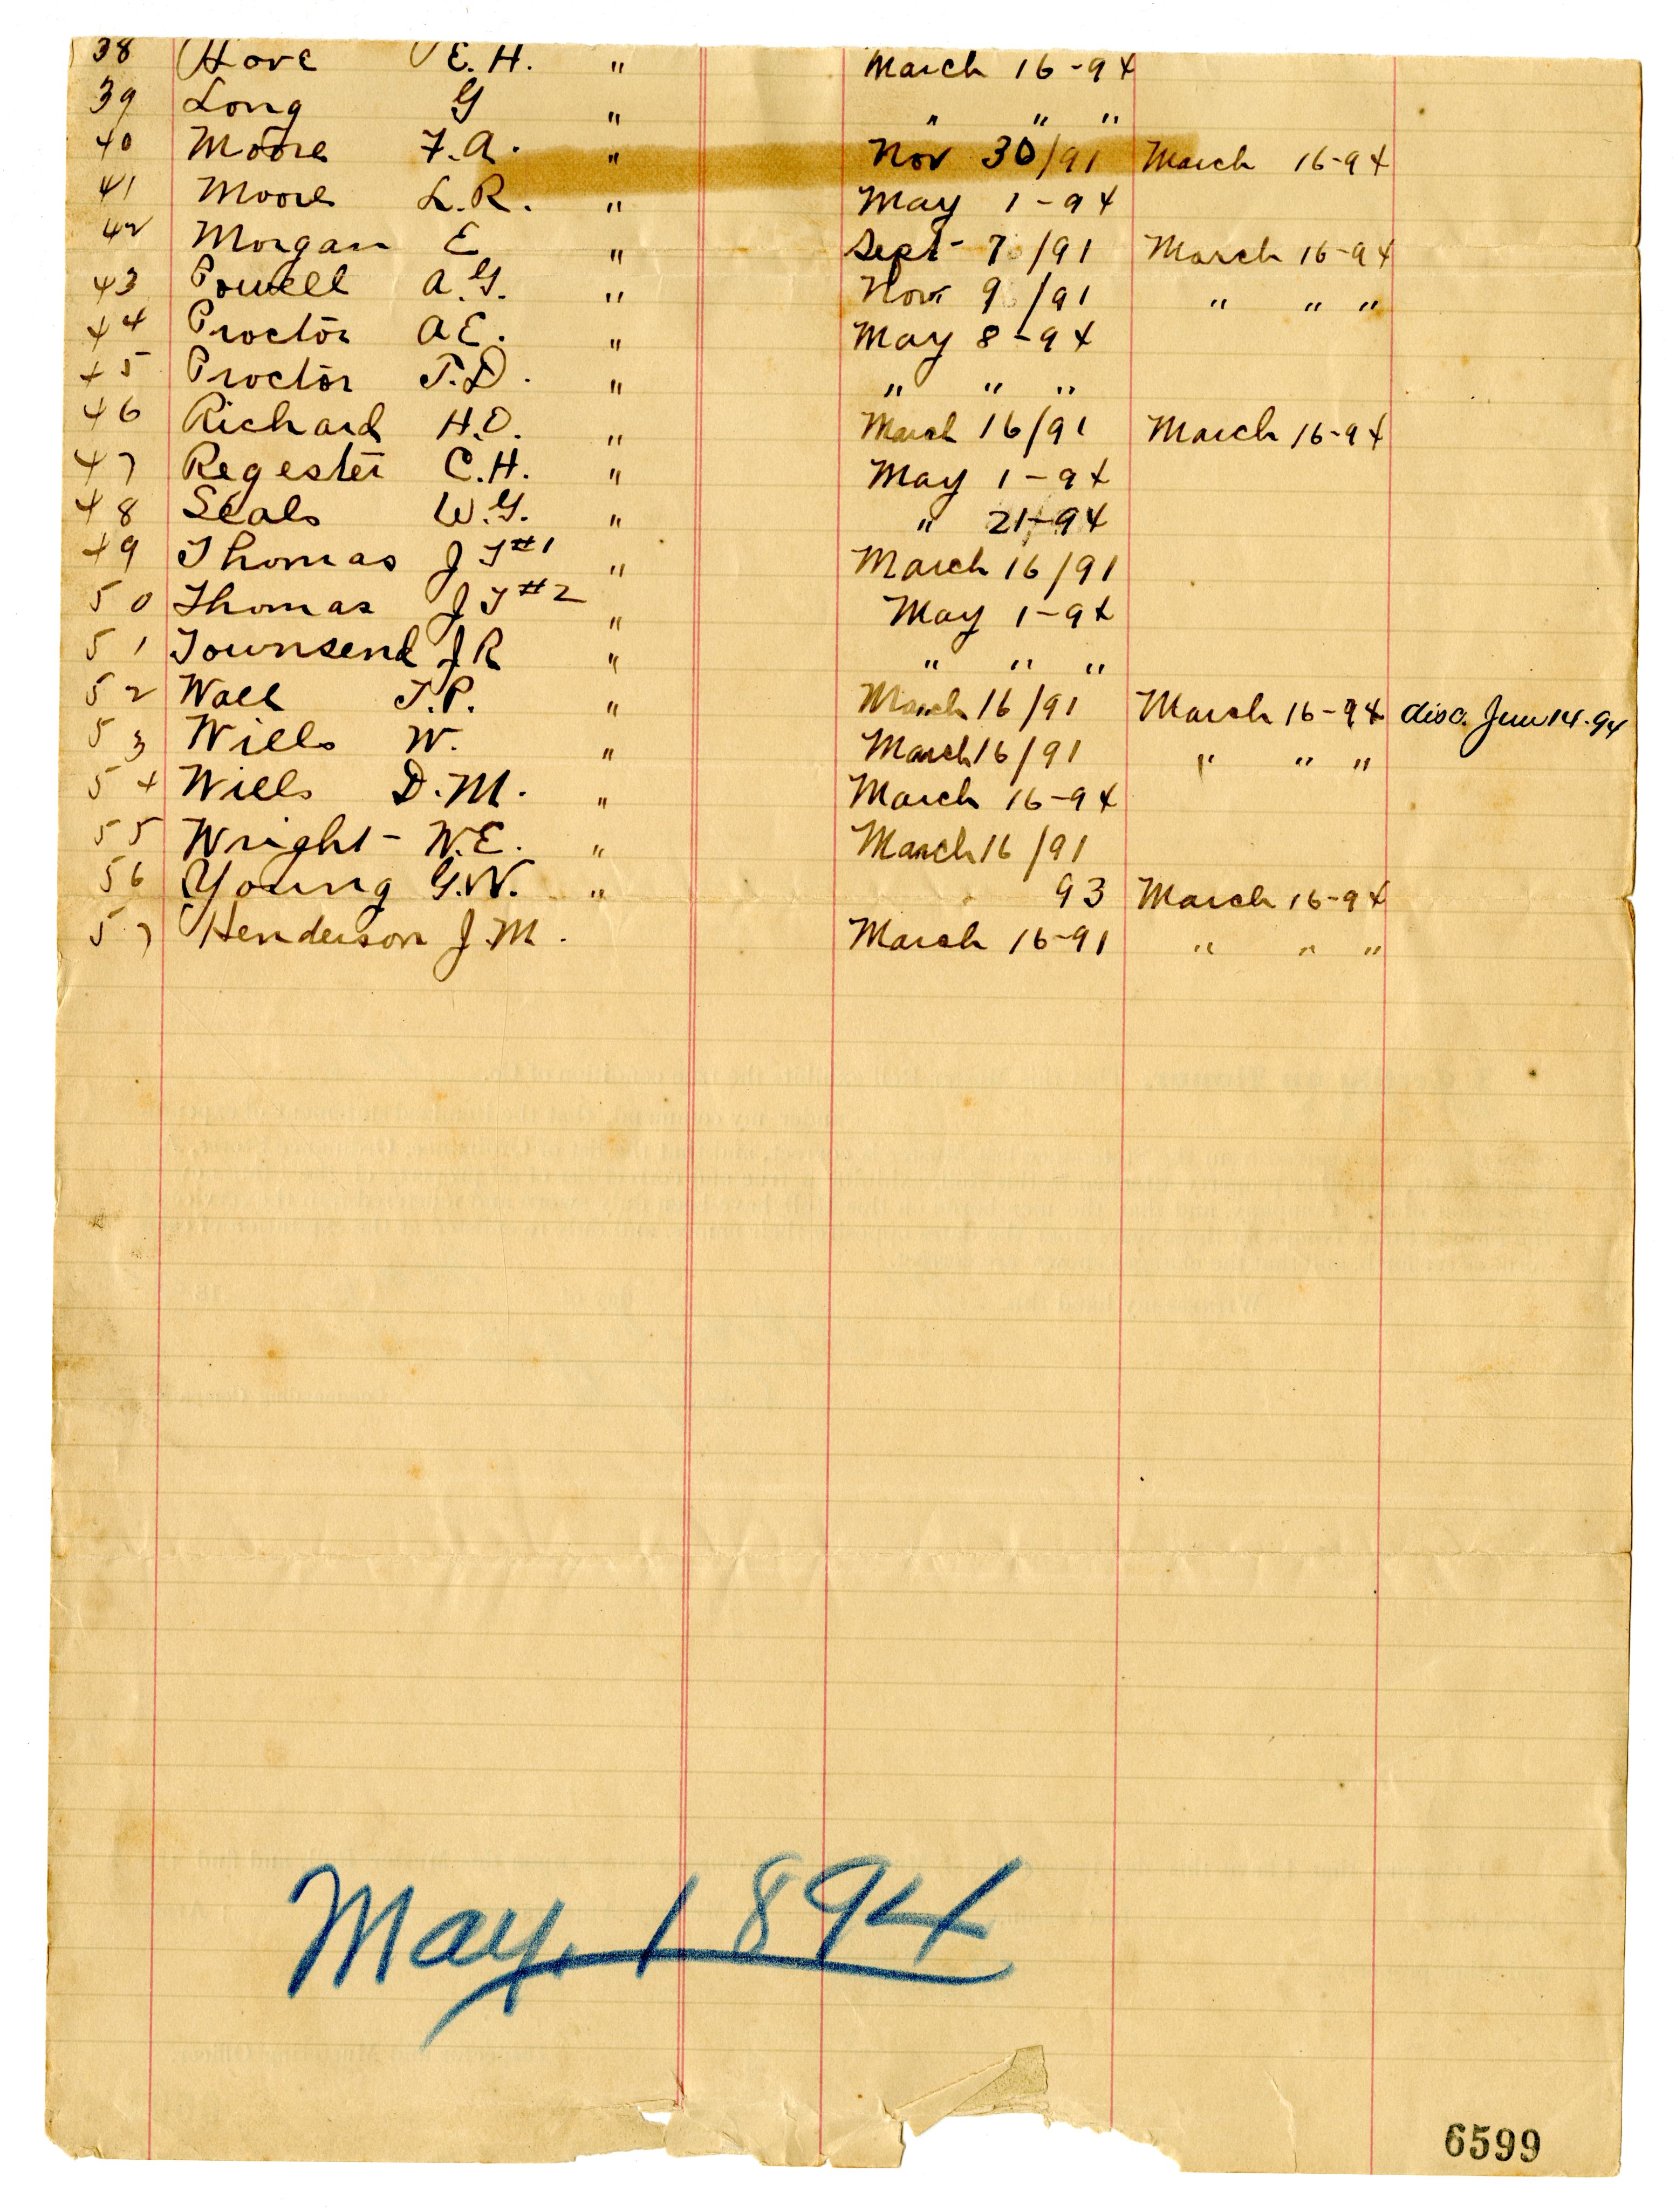 38 Hove E. H. " March 16-94
39 Long G " " " "
40 Moore F. A. " Nov 30/91 March 16-94
41 Moore L. R. " May 1-94
42 Morgan E " Sept 7/91 March 16-94
43 Powell A. G. " Nov. 9/91 " " "
44 Proctor A E. " May 8-94
45 Proctor T. D. " " " "
46 Richard H. O. " March 16/91 March 16-94
47 Regester C. H. " May 1-94
48 Seals W. G. " " 21-94
49 Thomas J T #1 " March 16/91
50 Thomas J T #2 " May 1-94
51 Townsend J R " " " "
52 Wall T. P. " March 16/91 March 16-94 disc. June 14-94
53 Wills W. " March 16/91 " " "
54 Wills D. M. " March 16-94
55 Wright W. E. " March 16/91
56 Young G. W. " 93 March 16-94
57 Henderson J. M. March 16-91 " " "
May, 1894
6599